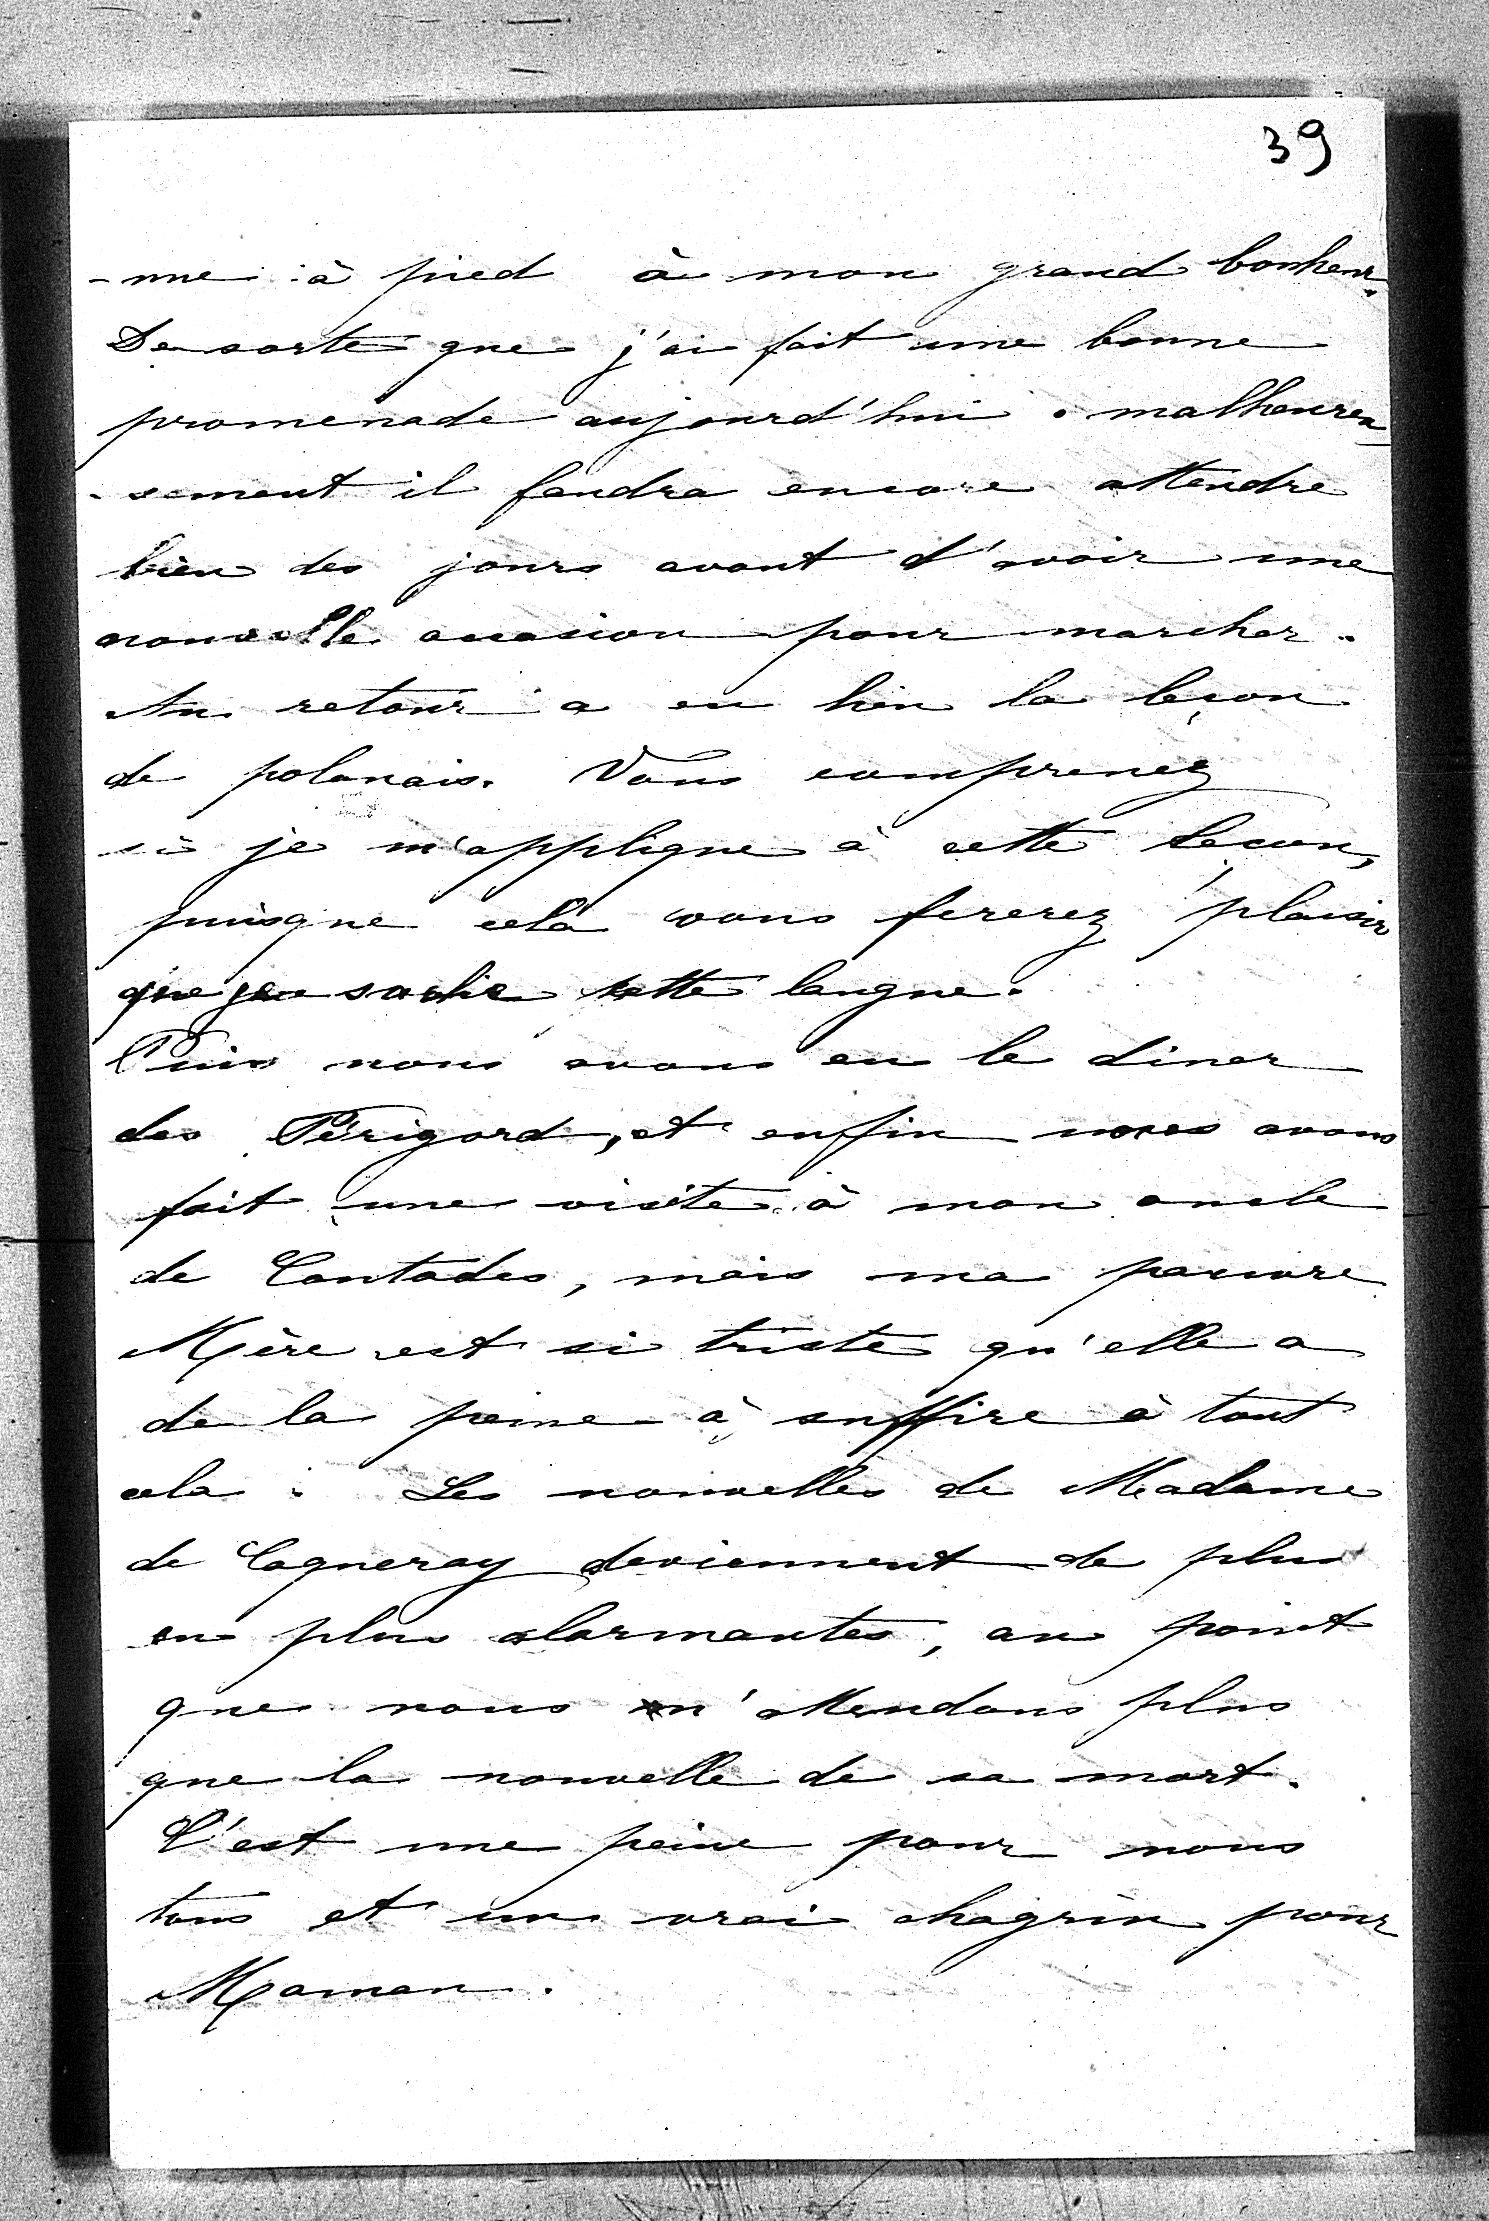 39
-nue à pied à mon grand bonheur.
De sorte que j'ai fait une bonne
promenade aujourd'hui. malheureu-
-sement il faudra encore attendre
bien des jours avant d'avoir une
nouvelle occasion pour marcher.
Au retour a eu lieu la leçon
de polonais. Vous comprenez
si je m'applique à cette leçon,
puisque cela vous ferez plaisir
que je sache cette langue.
Puis nous avons eu le diner
des Périgord, et enfin nous avons
fait une visite à mon oncle
de Contades, mais ma pauvre
Mère est si triste qu'elle a
de la peine à suffire à tout
cela. Les nouvelles de Madame
de Cagneray deviennent de plus
en plus alarmantes, au point
que nous n'attendons plus
que la nouvelle de sa mort.
C'est une peine pour nous
tous et un vrai chagrin pour
Maman.